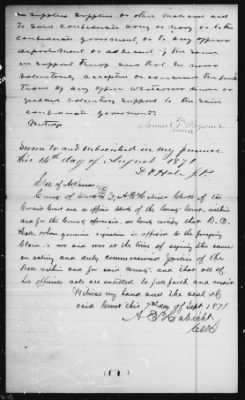 in supplies supplies or other
to said confederate army or navy or to the
confederate government, or to any officer
department or adherent of the same
in support thereof, and that he never
voluntarily accepted or exercised the functions
of any office whatsoever under or
yielded voluntary support to the said
confederate government.
Samuel
mark
Sworn to and subscribed in my presence
this 14th day of August 1871
Hale J.P.
State of Arkansas
County of
Circuit Court and ex officio clerk of the County Court
and for the County aforesaid do hereby certify that
Hale whose genuine signature is affixed to the foregoing
Claim is now and was at the time of signing the same
an acting and duly commissioned Justice of the
Peace within and for said County, and that all of
his official acts are entitled to full faith and credit
Witness my hand and the seal of
said Court this 7th day of Sept. 1871
Clerk